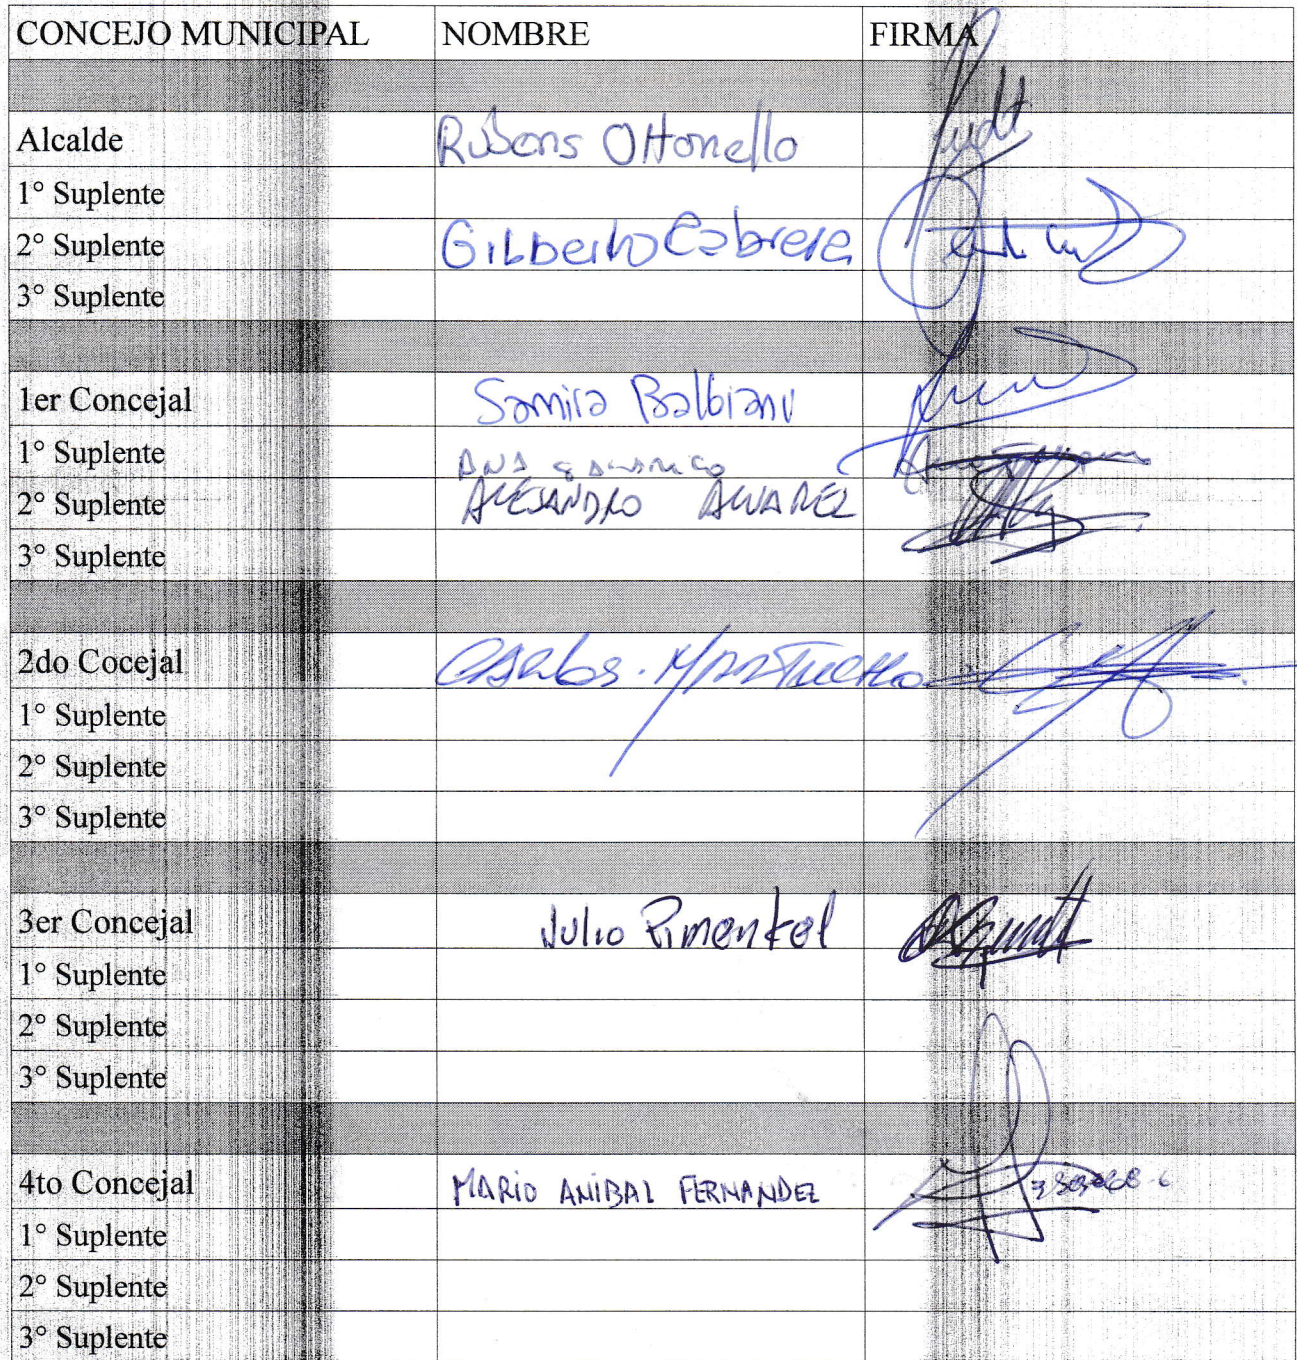 CONCEJO MUNICIPAL NOMBRE FIRMA
Alcalde Rubens Ottonello
1° Suplente
2° Suplente Gilberto Cabrera
3° Suplente
1er Concejal Samira Balbiani
1° Suplente ANA
2° Suplente ALEJANDRO ALVAREZ
3° Suplente
2do Cocejal Carlos
1° Suplente
2° Suplente
3° Suplente
3er Concejal Julio Pimentel
1° Suplente
2° Suplente
3° Suplente
4to Concejal MARIO ANIBAL FERNANDEZ
1° Suplente
2° Suplente
3° Suplente